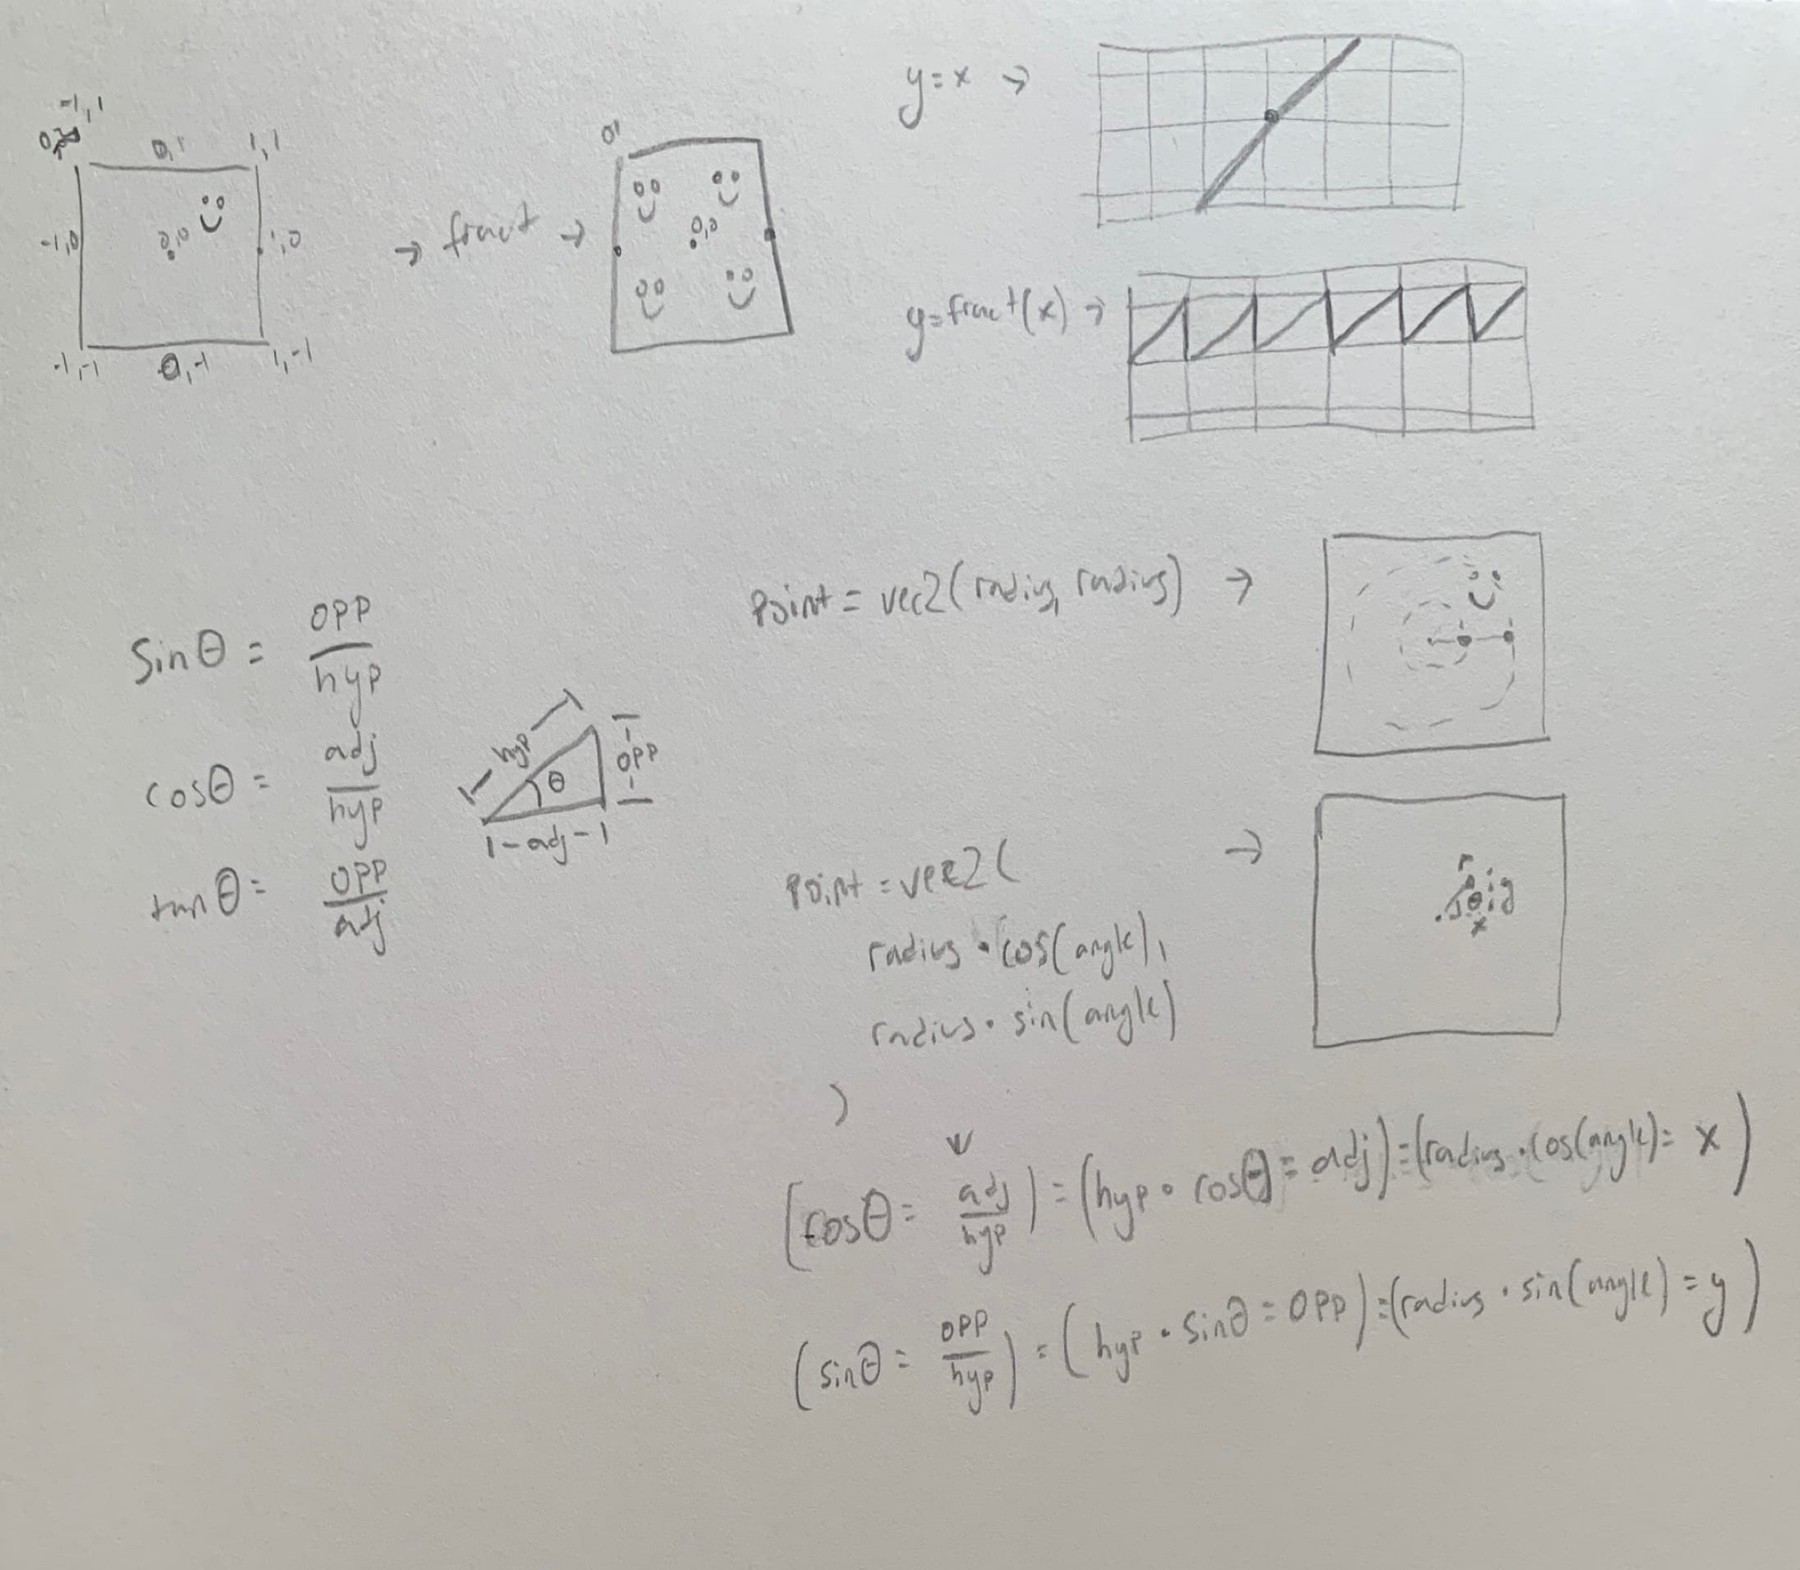 -1,1
0,1
1,1
-1,0
0,0
1,0
-1,-1
0,-1
1,-1
→ fract →
01
0,0
y=x →
y=fract(x) →
sinθ = opp/hyp
cosθ = adj/hyp
tanθ = opp/adj
hyp
θ
opp
1-adj-1
Point = vec2(radius, radius) →
Point = vec2( →
radius • cos(angle),
radius • sin(angle)
)
r
θ
y
x
(cosθ = adj/hyp) = (hyp • cosθ = adj) = (radius • cos(angle) = x)
(sinθ = opp/hyp) = (hyp • sinθ = opp) = (radius • sin(angle) = y)